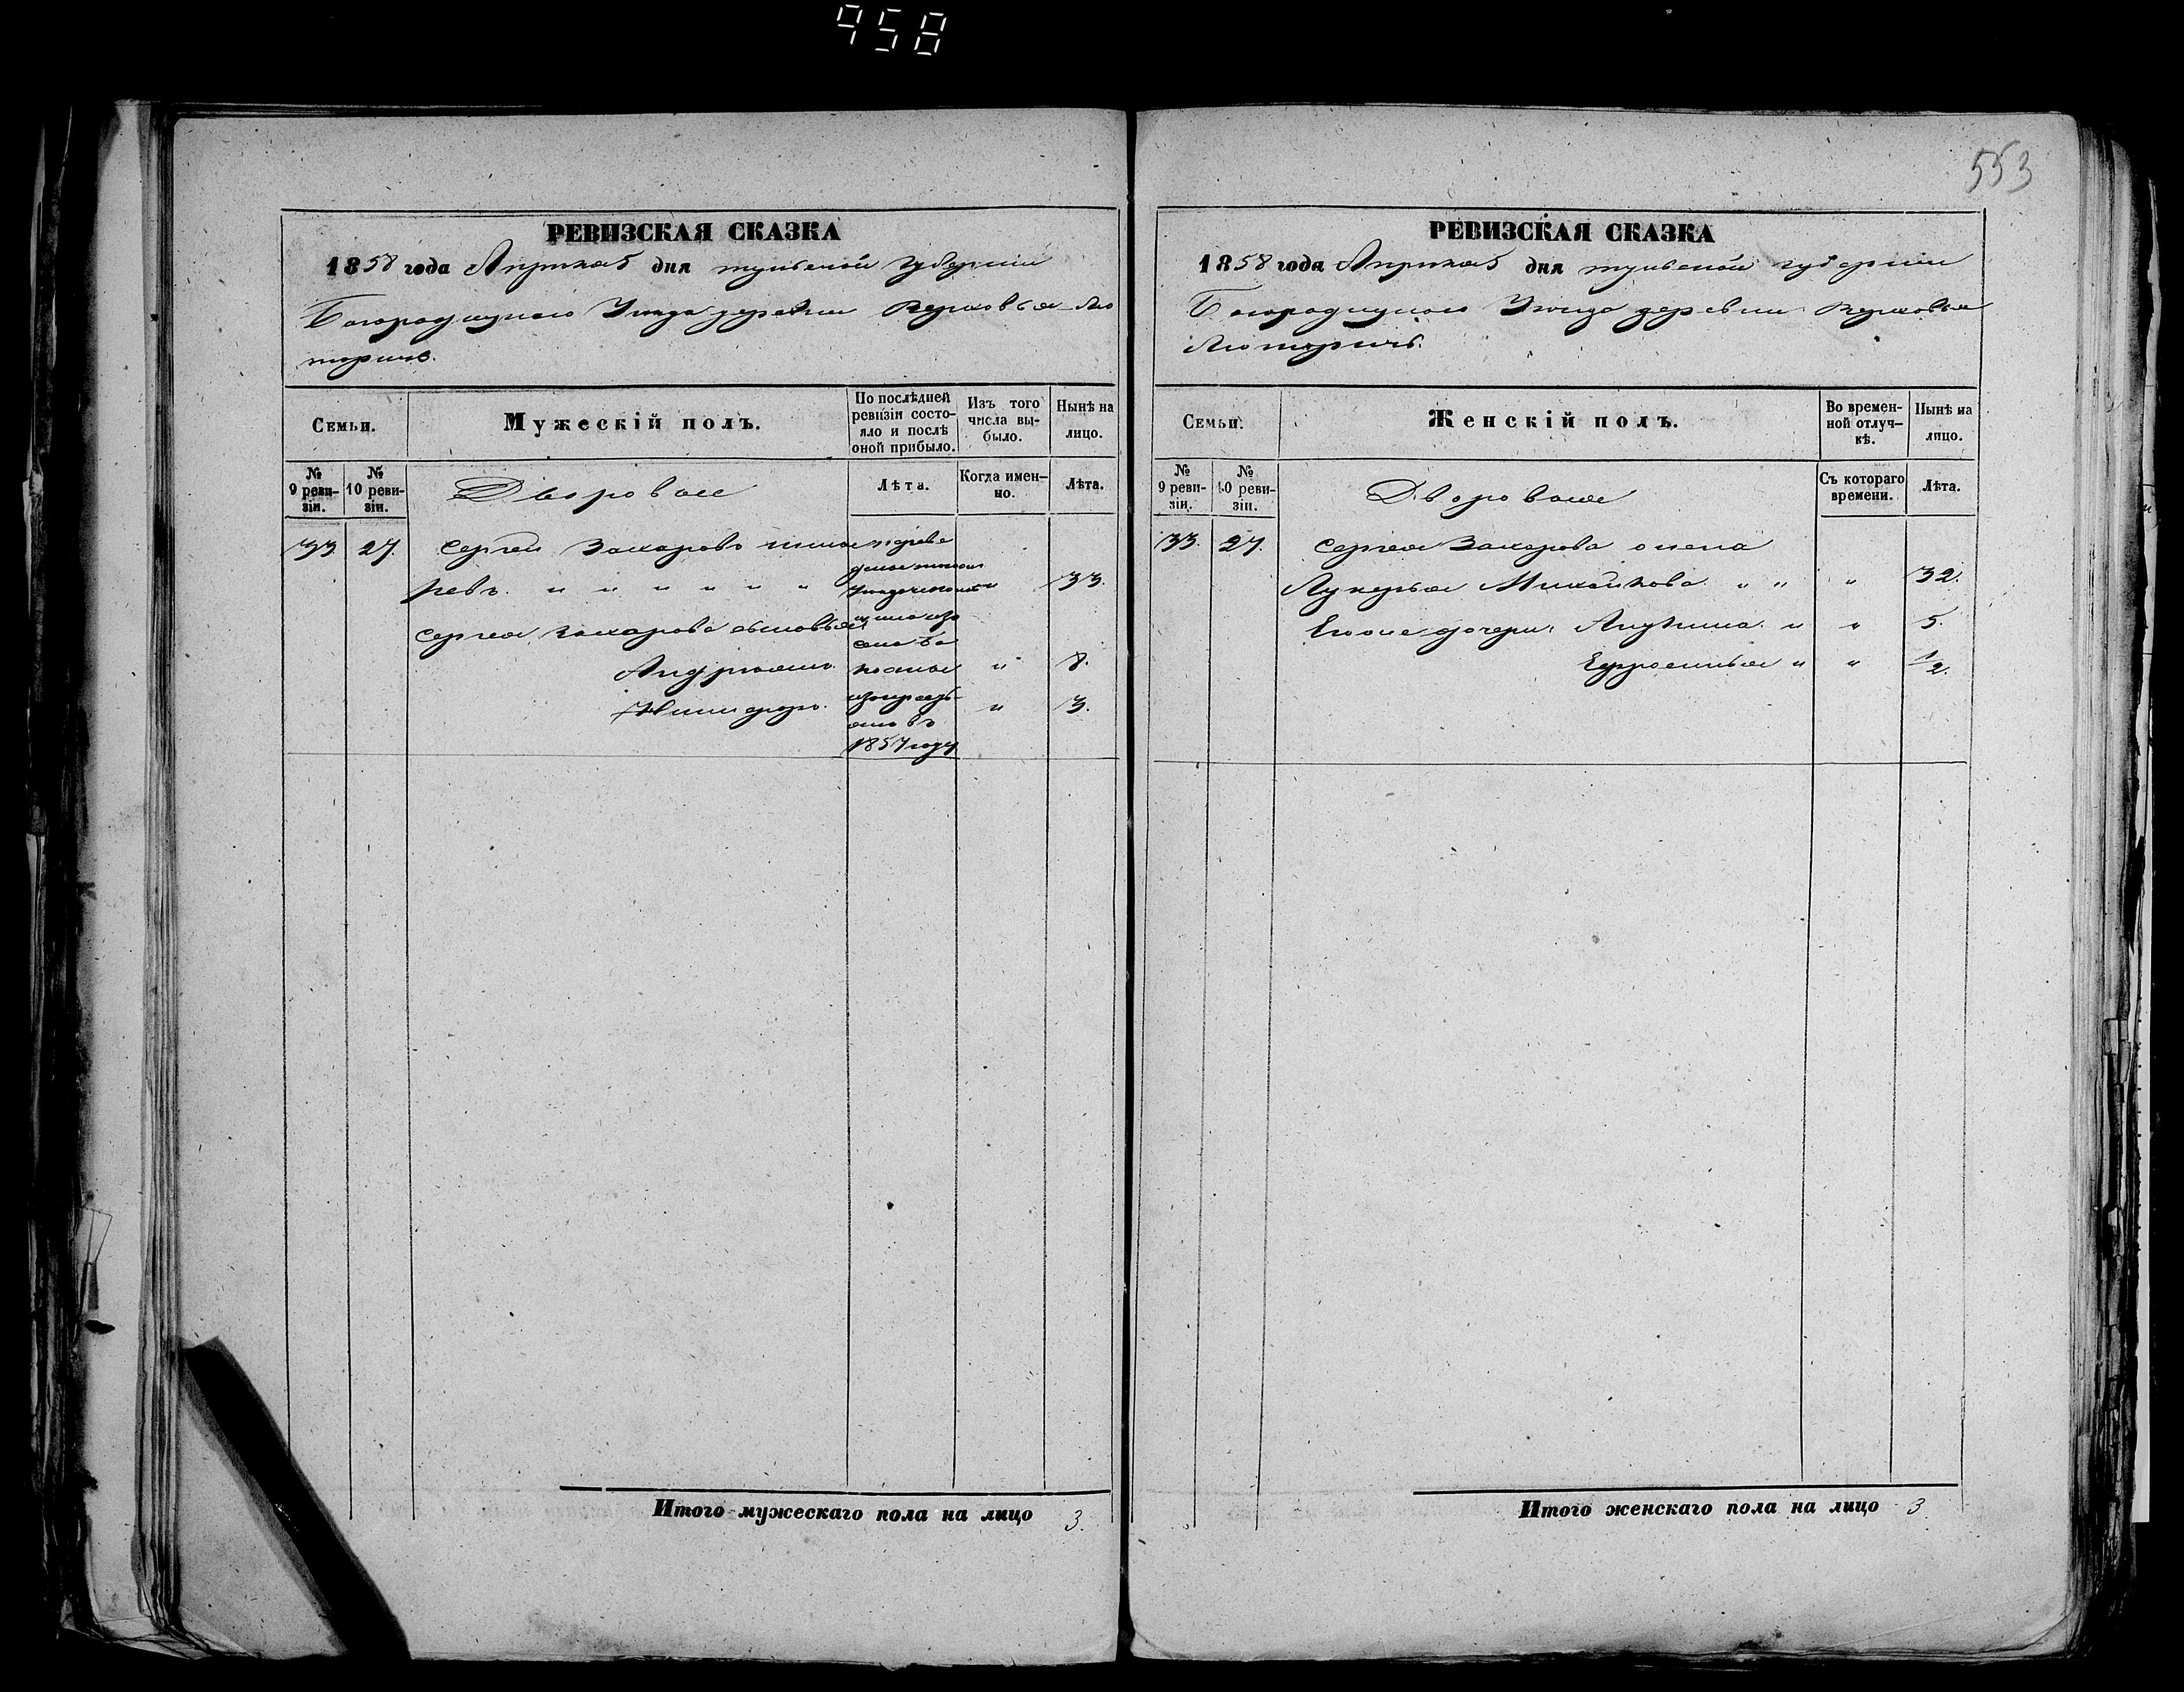 958
553
РЕВИЗСКАЯ СКАЗКА
1858 года Апреля 5 дня тульской губернии
Богородицкого Уезда деревни Верховья Лю
торичь.
Семьи.
Мужескій полъ.
По послѣдней ревизіи состояло и послѣ оной прибыло.
Изъ того числа выбыло.
Нынѣ на лицо.
№ 9 ревизіи.
№ 10 ревизіи.
Дворовые
Лѣта.
Когда именно.
Лѣта.
33 27. Сергей Захаровъ
" " " " " " 33.
Сергея Захарова сыновья
Андриянъ " 8.
Никифоръ. " 3.
1857 году
Итого мужескаго пола на лицо 3.
РЕВИЗСКАЯ СКАЗКА
1858 года Апреля 5 дня тульской губернии
Богородицкого Уезда деревни Верховья
Люторичь.
Семьи.
Женскій полъ.
Во временной отлучкѣ.
Нынѣ на лицо.
№ 9 ревизіи.
№ 10 ревизіи.
Дворовые
Съ котораго времени.
Лѣта.
33. 27. Сергея Захарова жена
Лукерья Михайлова " " " 32.
дочери: " " 5.
Ефросинья " " 1/2.
Итого женскаго пола на лицо 3